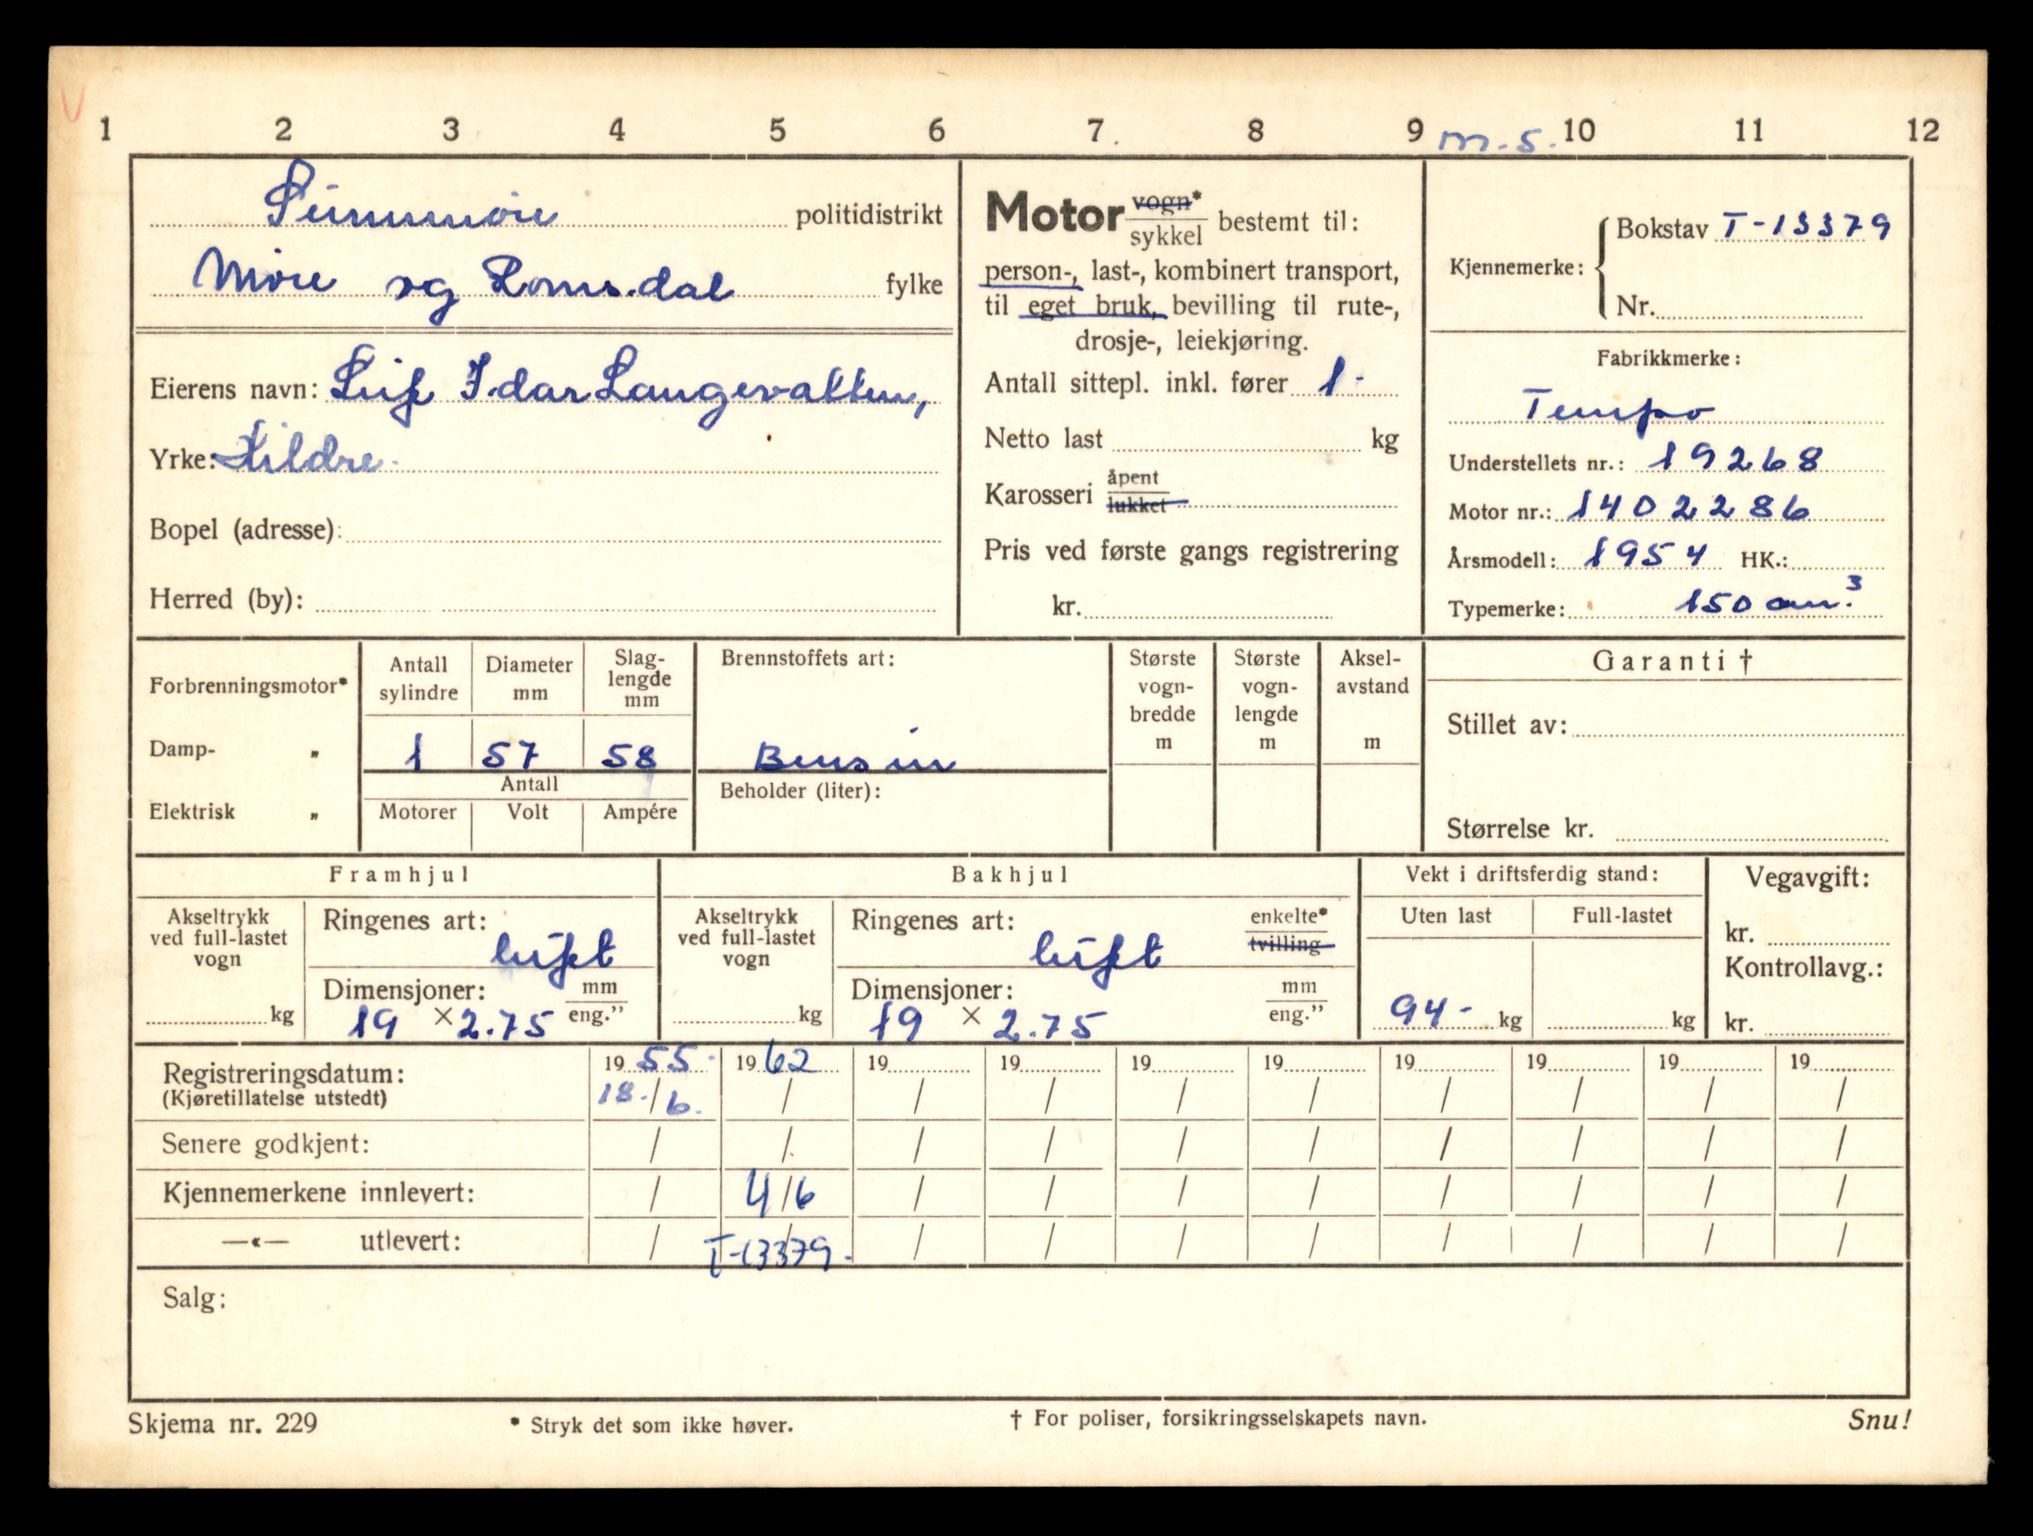 1 2 3 4 5 6 7 8 9 m.s. 10 11 12
Sunnmøre politidistrikt
Møre og Romsdal fylke
Eierens navn: Leif Idar Langevatten,
Yrke: Kildre.
Bopel (adresse):
Herred (by):
Motor vogn* / sykkel bestemt til:
person-, last-, kombinert transport,
til eget bruk, bevilling til rute-,
drosje-, leiekjøring.
Antall sittepl. inkl. fører 1-
Netto last kg
Karosseri åpent / lukket
Pris ved første gangs registrering
kr.
Kjennemerke: Bokstav T-13379
Nr.
Fabrikkmerke:
Tempo
Understellets nr.: 19268
Motor nr.: 1402286
Årsmodell: 1954 HK.:
Typemerke: 150 cm.³
Forbrenningsmotor*
Damp- „
Elektrisk „
Antall sylindre
Diameter mm
Slag-
lengde
mm
1 57 58
Antall
Motorer Volt Ampére
Brennstoffets art:
Bensin
Beholder (liter):
Største
vogn-
bredde
m
Største
vogn-
lengde
m
Aksel-
avstand
m
Garanti †
Stillet av:
Størrelse kr.
Framhjul
Akseltrykk
ved full-lastet
vogn
kg
Ringenes art:
luft
Dimensjoner: mm / eng.”
19 × 2.75
Bakhjul
Akseltrykk
ved full-lastet
vogn
kg
Ringenes art: enkelte* / tvilling
luft
Dimensjoner: mm / eng.”
19 × 2.75
Vekt i driftsferdig stand:
Uten last Full-lastet
94- kg kg
Vegavgift:
kr.
Kontrollavg.:
kr.
Registreringsdatum: 19 55. 19 62 19 19 19 19 19 19 19 19
(Kjøretillatelse utstedt) 18./6. / / / / / / / / /
Senere godkjent: / / / / / / / / / /
Kjennemerkene innlevert: / 4/6 / / / / / / / /
—«— utlevert: / T-13379. / / / / / / / /
Salg:
Skjema nr. 229
* Stryk det som ikke høver.
† For poliser, forsikringsselskapets navn.
Snu!